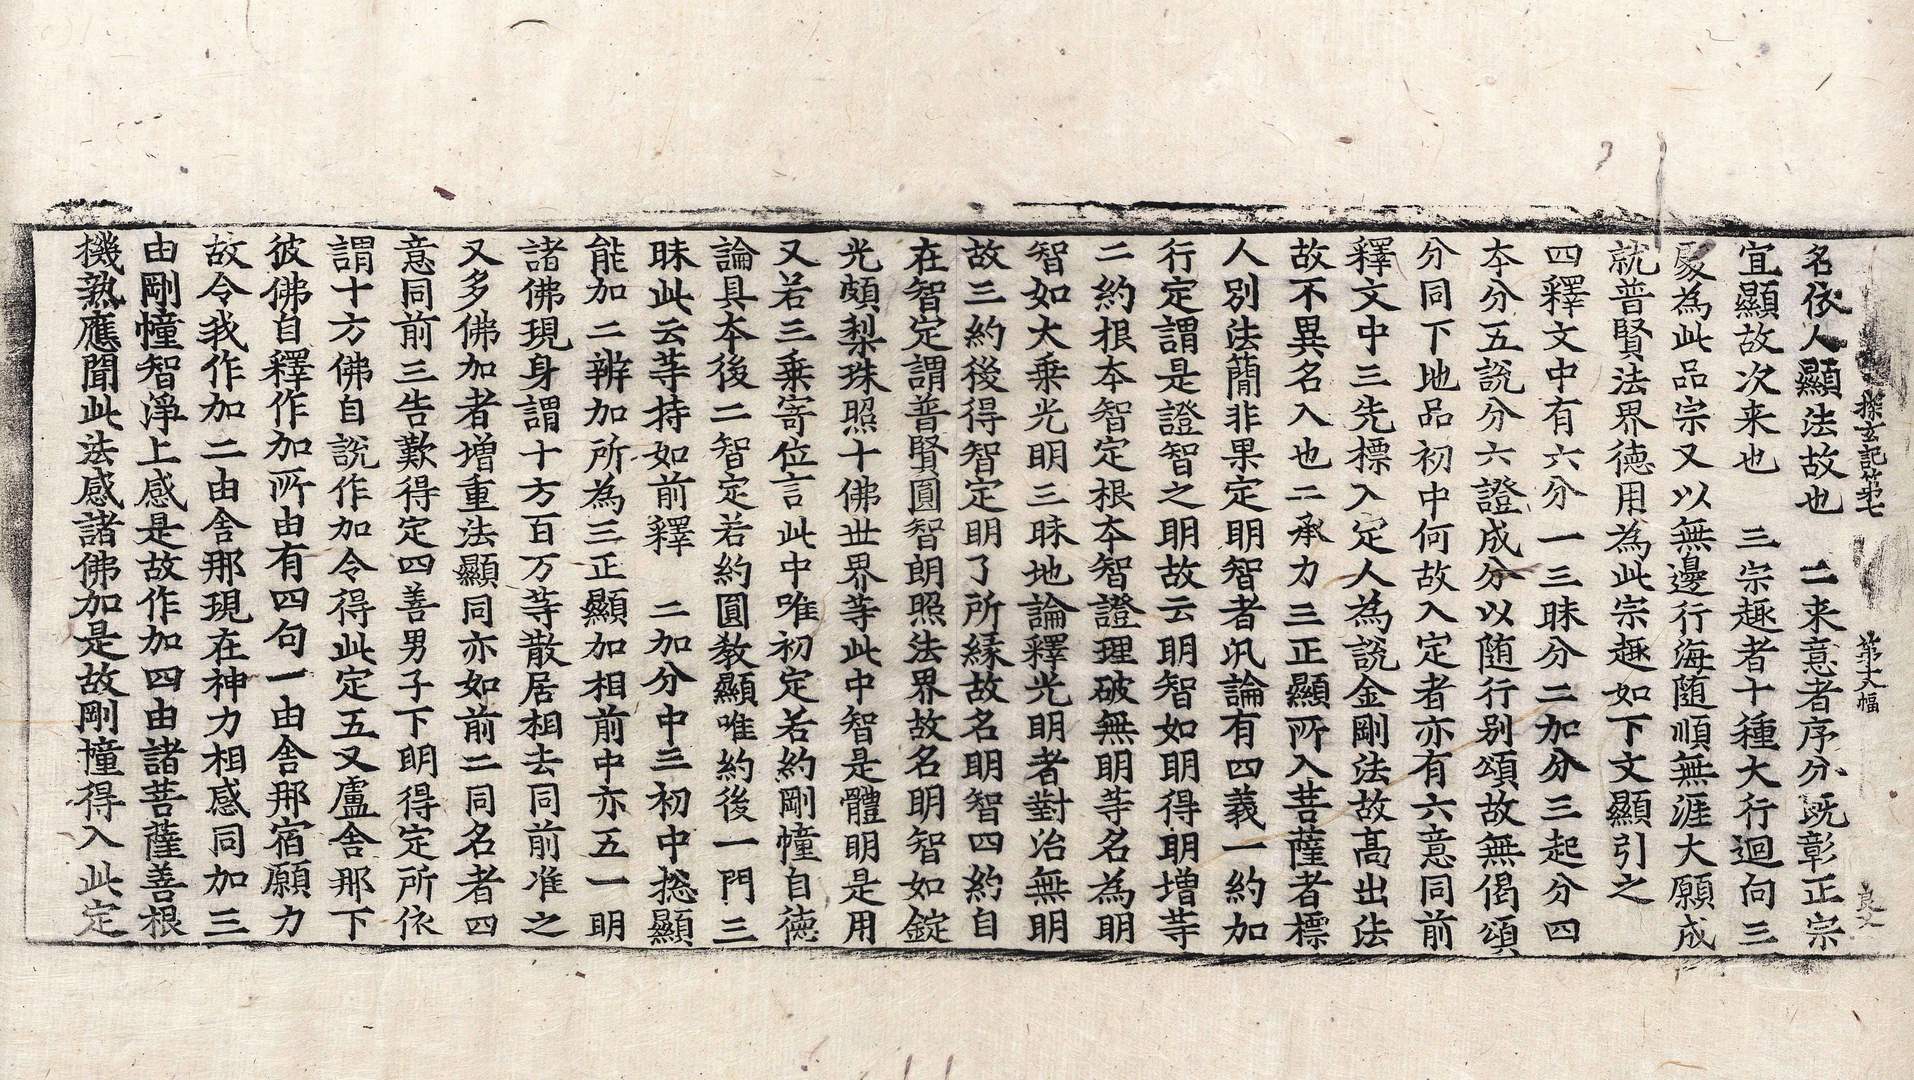 探玄記第七 第丈幅 良丈
名依人顯法故也 二来意者序分既彰正宗
宜顯故次来也 三宗趣者十種大行迴向三
處為此品宗又以無邊行海随順無涯大願成
就普賢法界徳用為此宗趣如下文顯引之
四釋文中有六分一三昧分二加分三起分四
本分五說分六證成分以随行别頌故無偈頌
分同下地品初中何故入定者亦有六意同前
釋文中三先標入定人為說金剛法故髙出法
故不異名入也二承力三正顯所入菩薩者標
人别法蕳非果定明智者汎論有四義一約加
行定謂是證智之明故云明智如明得明增等
二約根本智定根本智證理破無明等名為明
智如大乗光明三昧地論釋光明者對治無明
故三約後得智定明了所緣故名明智四約自
在智定謂普賢圓智朗照法界故名明智如錠
光頗梨珠照十佛世界等此中智是體明是用
又若三乗寄位言此中唯初定若約剛幢自徳
論具本後二智定若約圓教顯唯約後一門三
昧此云等持如前釋 二加分中三初中揔顯
能加二辨加所為三正顯加相前中亦五一明
諸佛現身謂十方百万等散居相去同前准之
又多佛加者增重法顯同亦如前二同名者四
意同前三告歎得定四善男子下明得定所依
謂十方佛自說作加令得此定五又盧舍那下
彼佛自釋作加所由有四句一由舍那宿願力
故令我作加二由舍那現在神力相感同加三
由剛幢智淨上感是故作加四由諸菩薩善根
機熟應聞此法感諸佛加是故剛幢得入此定